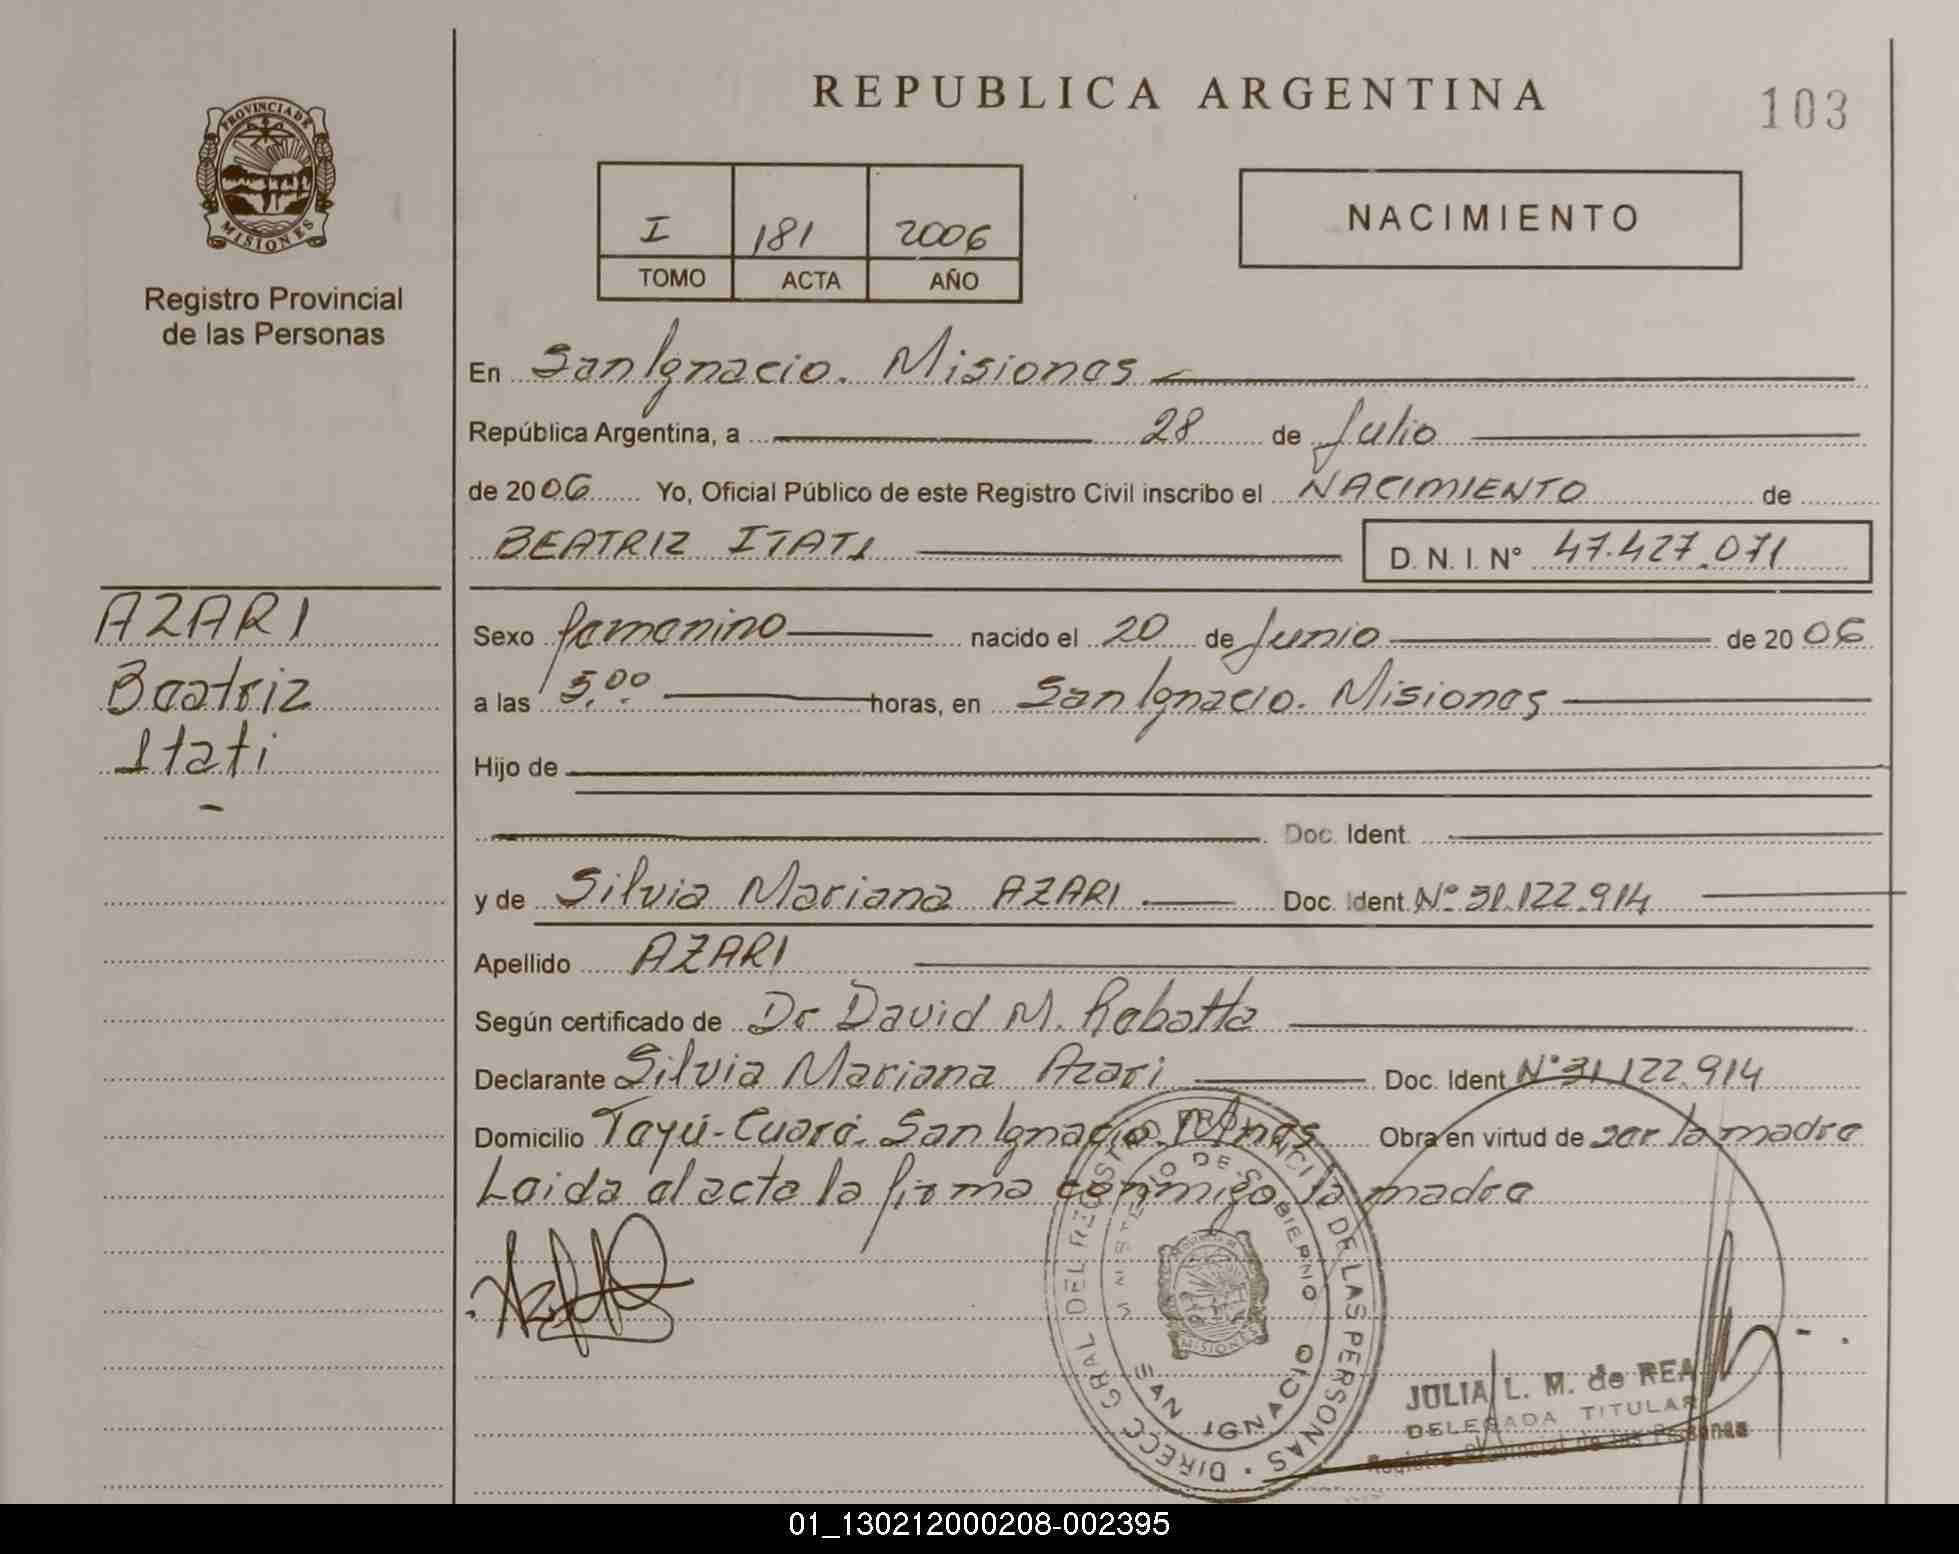 REPUBLICA ARGENTINA
103
PROVINCIA DE
MISIONES
Registro Provincial
de las Personas
I 181 2006
TOMO ACTA AÑO
NACIMIENTO
En San Ignacio. Misiones
República Argentina, a 28 de Julio
de 2006 Yo, Oficial Público de este Registro Civil inscribo el NACIMIENTO de
BEATRIZ ITATI D. N. I. N° 47.427.071
AZARI
Beatriz
Itati
Sexo femenino nacido el 20 de Junio de 2006
a las 5.00 horas, en San Ignacio. Misiones
Hijo de
Doc. Ident.
y de Silvia Mariana AZARI Doc. Ident N° 31.122.914
Apellido AZARI
Según certificado de Dr David M. Rabatta
Declarante Silvia Mariana Azari Doc. Ident N° 31.122.914
Domicilio Tayú-Cuaré. San Ignacio. Mnes Obra en virtud de ser la madre
Leida el acta la firma conmigo la madre
DIRECC GRAL DEL REGISTRO PROVINCIAL DE LAS PERSONAS
MINISTERIO DE GOBIERNO
MISIONES
SAN IGNACIO
JULIA L. M. de REA
DELEGADA TITULAR
Registro Provincial de las Personas
01_130212000208-002395